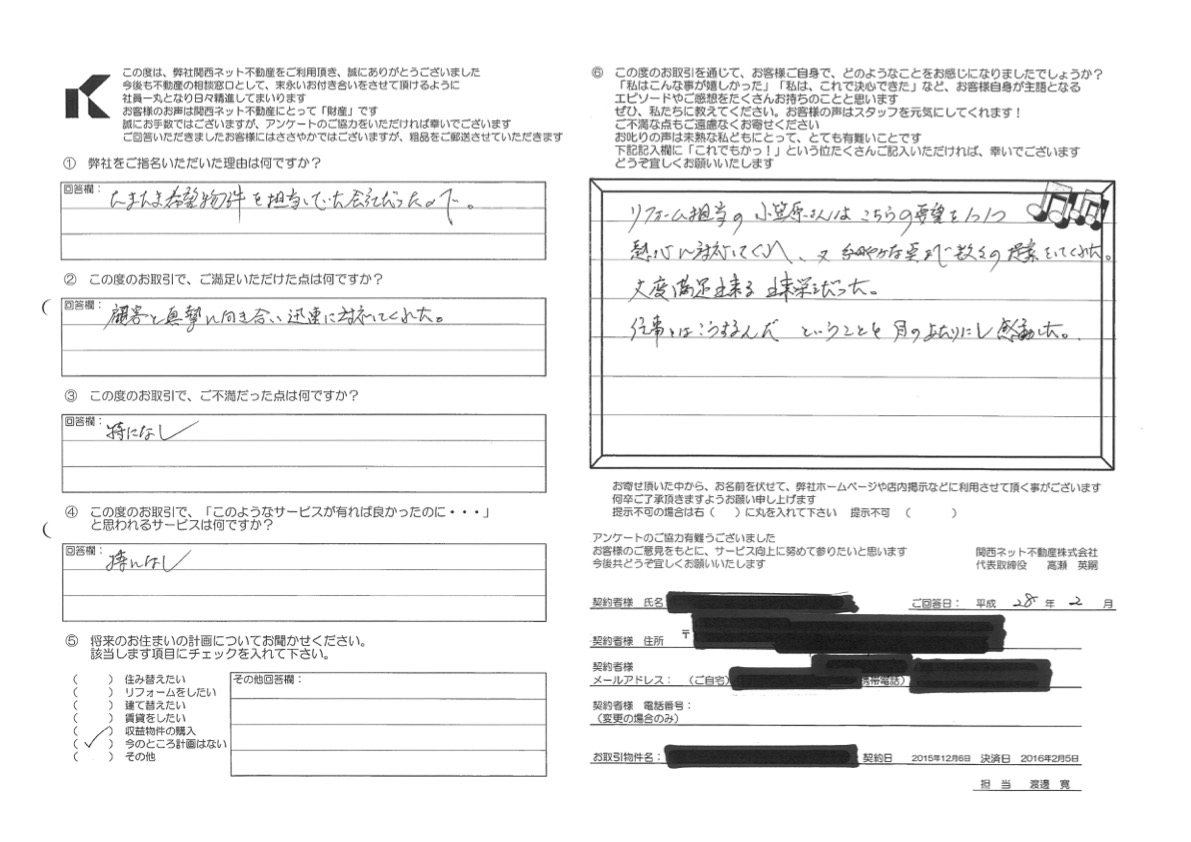 この度は、弊社関西ネット不動産をご利用頂き、誠にありがとうございました
今後も不動産の相談窓口として、末永いお付き合いをさせて頂けるように
社員一丸となり日々精進してまいります
お客様のお声は関西ネット不動産にとって「財産」です
誠にお手数ではございますが、アンケートのご協力をいただければ幸いでございます
ご回答いただきましたお客様にはささやかではございますが、粗品をご郵送させていただきます
① 弊社をご指名いただいた理由は何ですか？
回答欄：たまたま希望物件を担当していた会社だったので。
② この度のお取引で、ご満足いただけた点は何ですか？
回答欄：顧客と真摯に向き合い迅速に対応してくれた。
③ この度のお取引で、ご不満だった点は何ですか？
回答欄：特になし
④ この度のお取引で、「このようなサービスが有れば良かったのに・・・」
と思われるサービスは何ですか？
回答欄：特になし
⑤ 将来のお住まいの計画についてお聞かせください。
該当します項目にチェックを入れて下さい。
（　　） 住み替えたい
（　　） リフォームをしたい
（　　） 建て替えたい
（　　） 賃貸をしたい
（　　） 収益物件の購入
（ ✓ ） 今のところ計画はない
（　　） その他
その他回答欄：
⑥ この度のお取引を通じて、お客様ご自身で、どのようなことをお感じになりましたでしょうか？
「私はこんな事が嬉しかった」「私は、これで決心できた」など、お客様自身が主語となる
エピソードやご感想をたくさんお持ちのことと思います
ぜひ、私たちに教えてください。お客様の声はスタッフを元気にしてくれます！
ご不満な点もご遠慮なくお寄せください
お叱りの声は未熟な私どもにとって、とても有難いことです
下記記入欄に「これでもかっ！」という位たくさんご記入いただければ、幸いでございます
どうぞ宜しくお願いいたします
リフォーム担当の小笠原さんはこちらの要望を1つ1つ
熱心に対応してくれ、又細やかな点まで数々の提案をしてくれた。
大変満足出来る出来栄えだった。
仕事とはこうするんだ ということを目のあたりにし感動した。
お寄せ頂いた中から、お名前を伏せて、弊社ホームページや店内掲示などに利用させて頂く事がございます
何卒ご了承頂きますようお願い申し上げます
提示不可の場合は右（　　）に丸を入れて下さい　提示不可　（　　　）
アンケートのご協力有難うございました
お客様のご意見をもとに、サービス向上に努めて参りたいと思います
今後共どうぞ宜しくお願いいたします
関西ネット不動産株式会社
代表取締役　高瀬　英嗣
契約者様 氏名
ご回答日： 平成 28 年 2 月
契約者様 住所 〒
契約者様
メールアドレス： （ご自宅） 携帯電話）
契約者様 電話番号：
（変更の場合のみ）
お取引物件名： 契約日 2015年12月6日 決済日 2016年2月5日
担　当　渡邊　寛